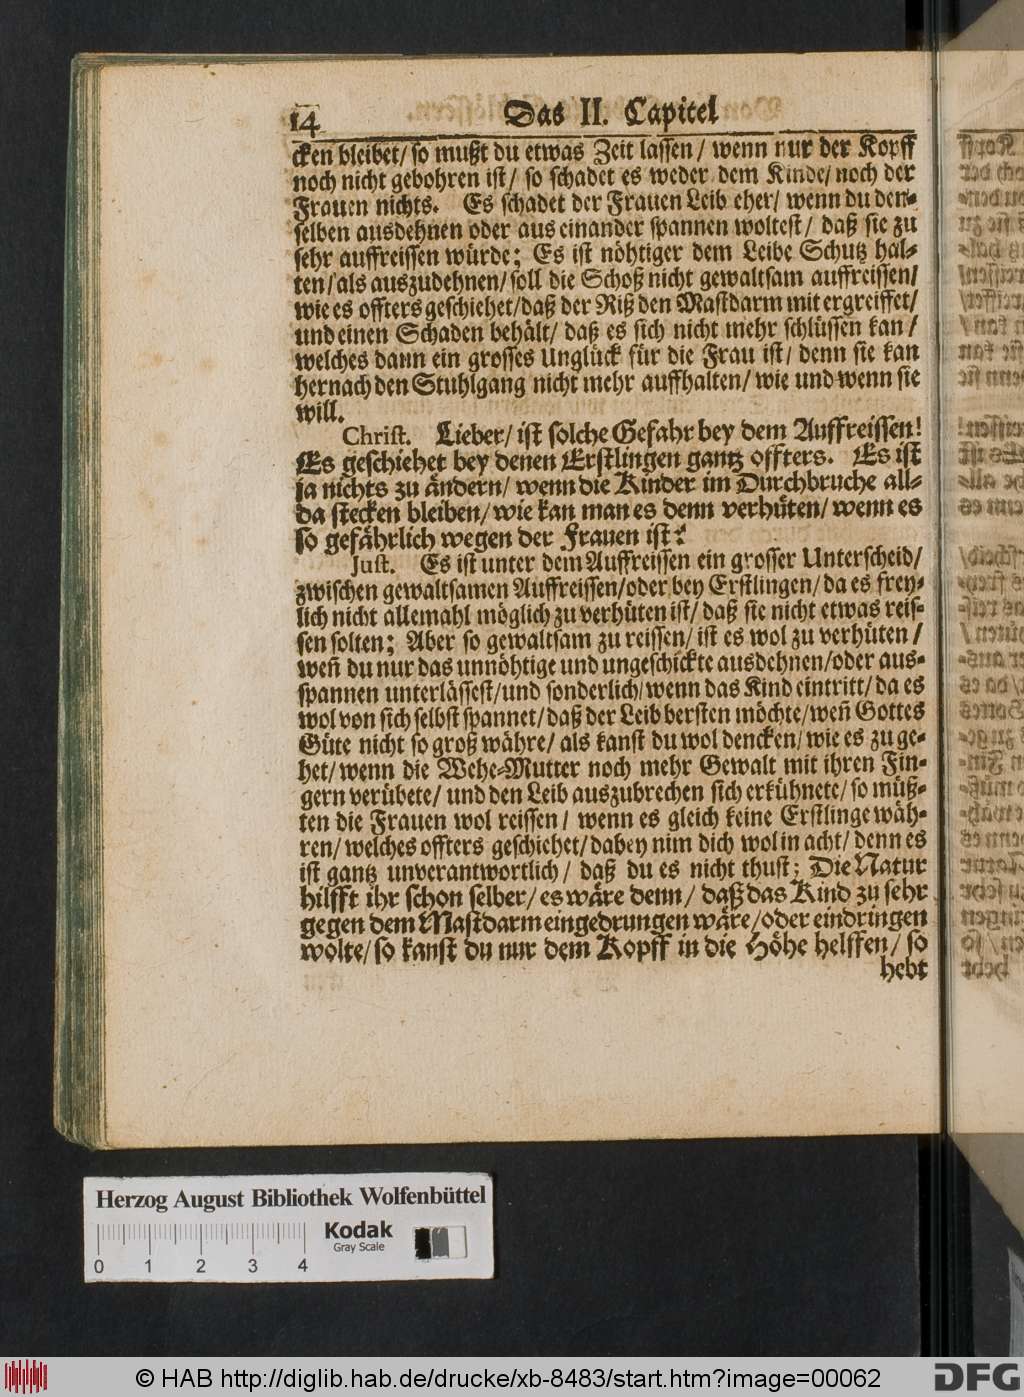 14 Das II. Capitel
cken bleibet/ so mußt du etwas Zeit lassen/ wenn nur der Kopff
noch nicht gebohren ist/ so schadet es weder dem Kinde/ noch der
Frauen nichts. Es schadet der Frauen Leib eher/ wenn du den-
selben ausdehnen oder aus einander spannen woltest/ daß sie zu
sehr auffreissen würde; Es ist nöhtiger dem Leibe Schutz hal-
ten/ als auszudehnen/ soll die Schoß nicht gewaltsam auffreissen/
wie es offters geschiehet/ daß der Riß den Mastdarm mit ergreiffet/
und einen Schaden behält/ daß es sich nicht mehr schlüssen kan/
welches dann ein grosses Unglück für die Frau ist/ denn sie kan
hernach den Stuhlgang nicht mehr auffhalten/ wie und wenn sie
will.
Christ. Lieber/ ist solche Gefahr bey dem Auffreissen!
Es geschiehet bey denen Erstlingen gantz offters. Es ist
ja nichts zu ändern/ wenn die Kinder im Durchbruche all-
da stecken bleiben/ wie kan man es denn verhüten/ wenn es
so gefährlich wegen der Frauen ist?
Just. Es ist unter dem Auffreissen ein grosser Unterscheid/
zwischen gewaltsamen Auffreissen/ oder bey Erstlingen/ da es frey-
lich nicht allemahl möglich zu verhüten ist/ daß sie nicht etwas reis-
sen solten; Aber so gewaltsam zu reissen/ ist es wol zu verhüten/
weñ du nur das unnöhtige und ungeschickte ausdehnen/ oder aus-
spannen unterlässest/ und sonderlich/ wenn das Kind eintritt/ da es
wol von sich selbst spannet/ daß der Leib bersten möchte/ weñ Gottes
Güte nicht so groß währe/ als kanst du wol dencken/ wie es zu ge-
het/ wenn die Wehe-Mutter noch mehr Gewalt mit ihren Fin-
gern verübete/ und den Leib auszubrechen sich erkühnete/ so müß-
ten die Frauen wol reissen/ wenn es gleich keine Erstlinge wäh-
ren/ welches offters geschiehet/ dabey nim dich wol in acht/ denn es
ist gantz unverantwortlich/ daß du es nicht thust; Die Natur
hilfft ihr schon selber/ es wäre denn/ daß das Kind zu sehr
gegen dem Mastdarm eingedrungen wäre/ oder eindringen
wolte/ so kanst du nur dem Kopff in die Höhe helffen/ so
hebt
Herzog August Bibliothek Wolfenbüttel
Kodak
Gray Scale
0 1 2 3 4
© HAB http://diglib.hab.de/drucke/xb-8483/start.htm?image=00062
DFG